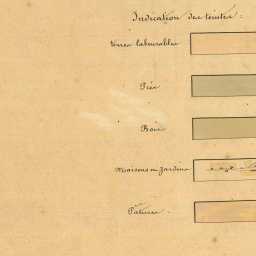 Indication des teintes :
terres labourables
Prés
Bois
Maisons et Jardins
Pature